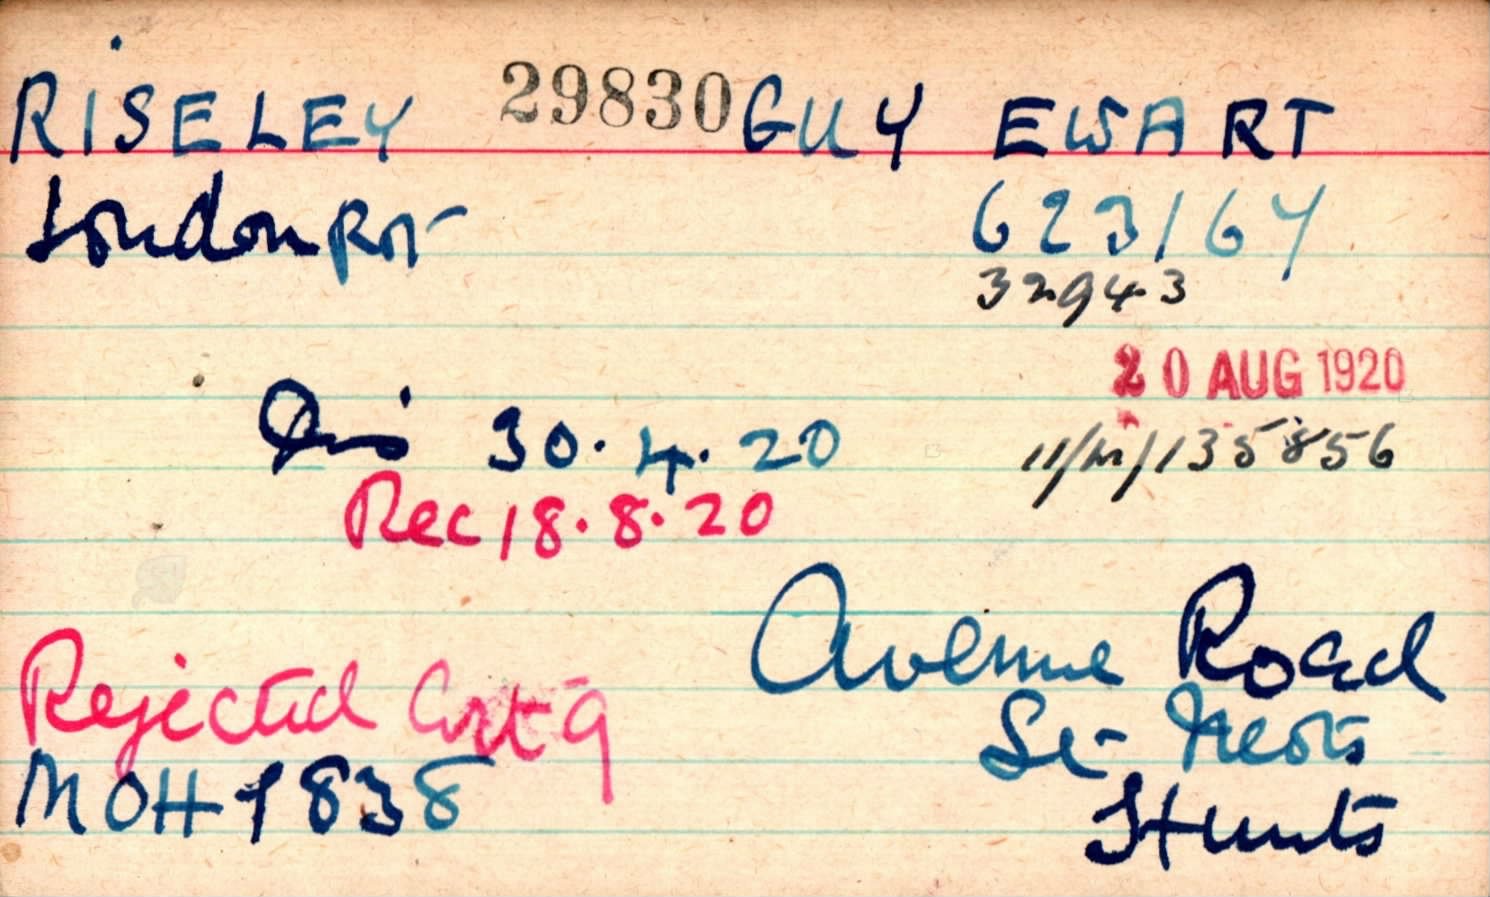 RISELEY 29830 GUY EWART
London Rgt 623164
32943
20 AUG 1920
Dis 30.4.20 11/M/135856
Rec 18.8.20
Avenue Road
Rejected Art 9 St Neots
MOH 1838 Hunts